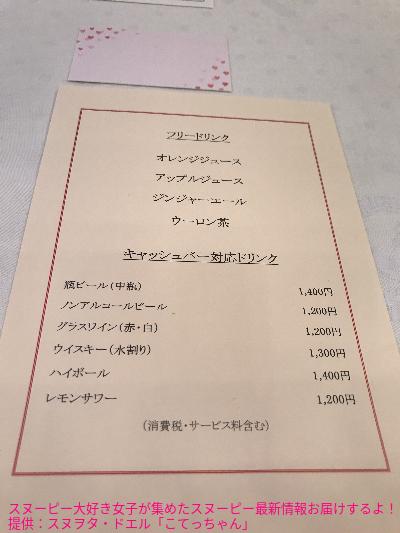 フリードリンク
オレンジジュース
アップルジュース
ジンジャーエール
ウーロン茶
キャッシュバー対応ドリンク
瓶ビール(中瓶) 1,400円
ノンアルコールビール 1,200円
グラスワイン(赤・白) 1,200円
ウイスキー(水割り) 1,300円
ハイボール 1,400円
レモンサワー 1,200円
(消費税・サービス料含む)
スヌーピー大好き女子が集めたスヌーピー最新情報お届けするよ!
提供:スヌヲタ・ドエル「こてっちゃん」